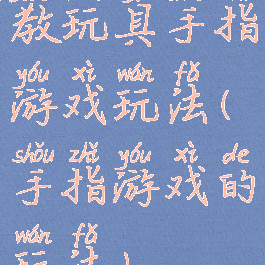 教玩具手指
yóu xì wán fǎ
游戏玩法(
shǒu zhǐ yóu xì de
手指游戏的
wán fǎ
玩法)